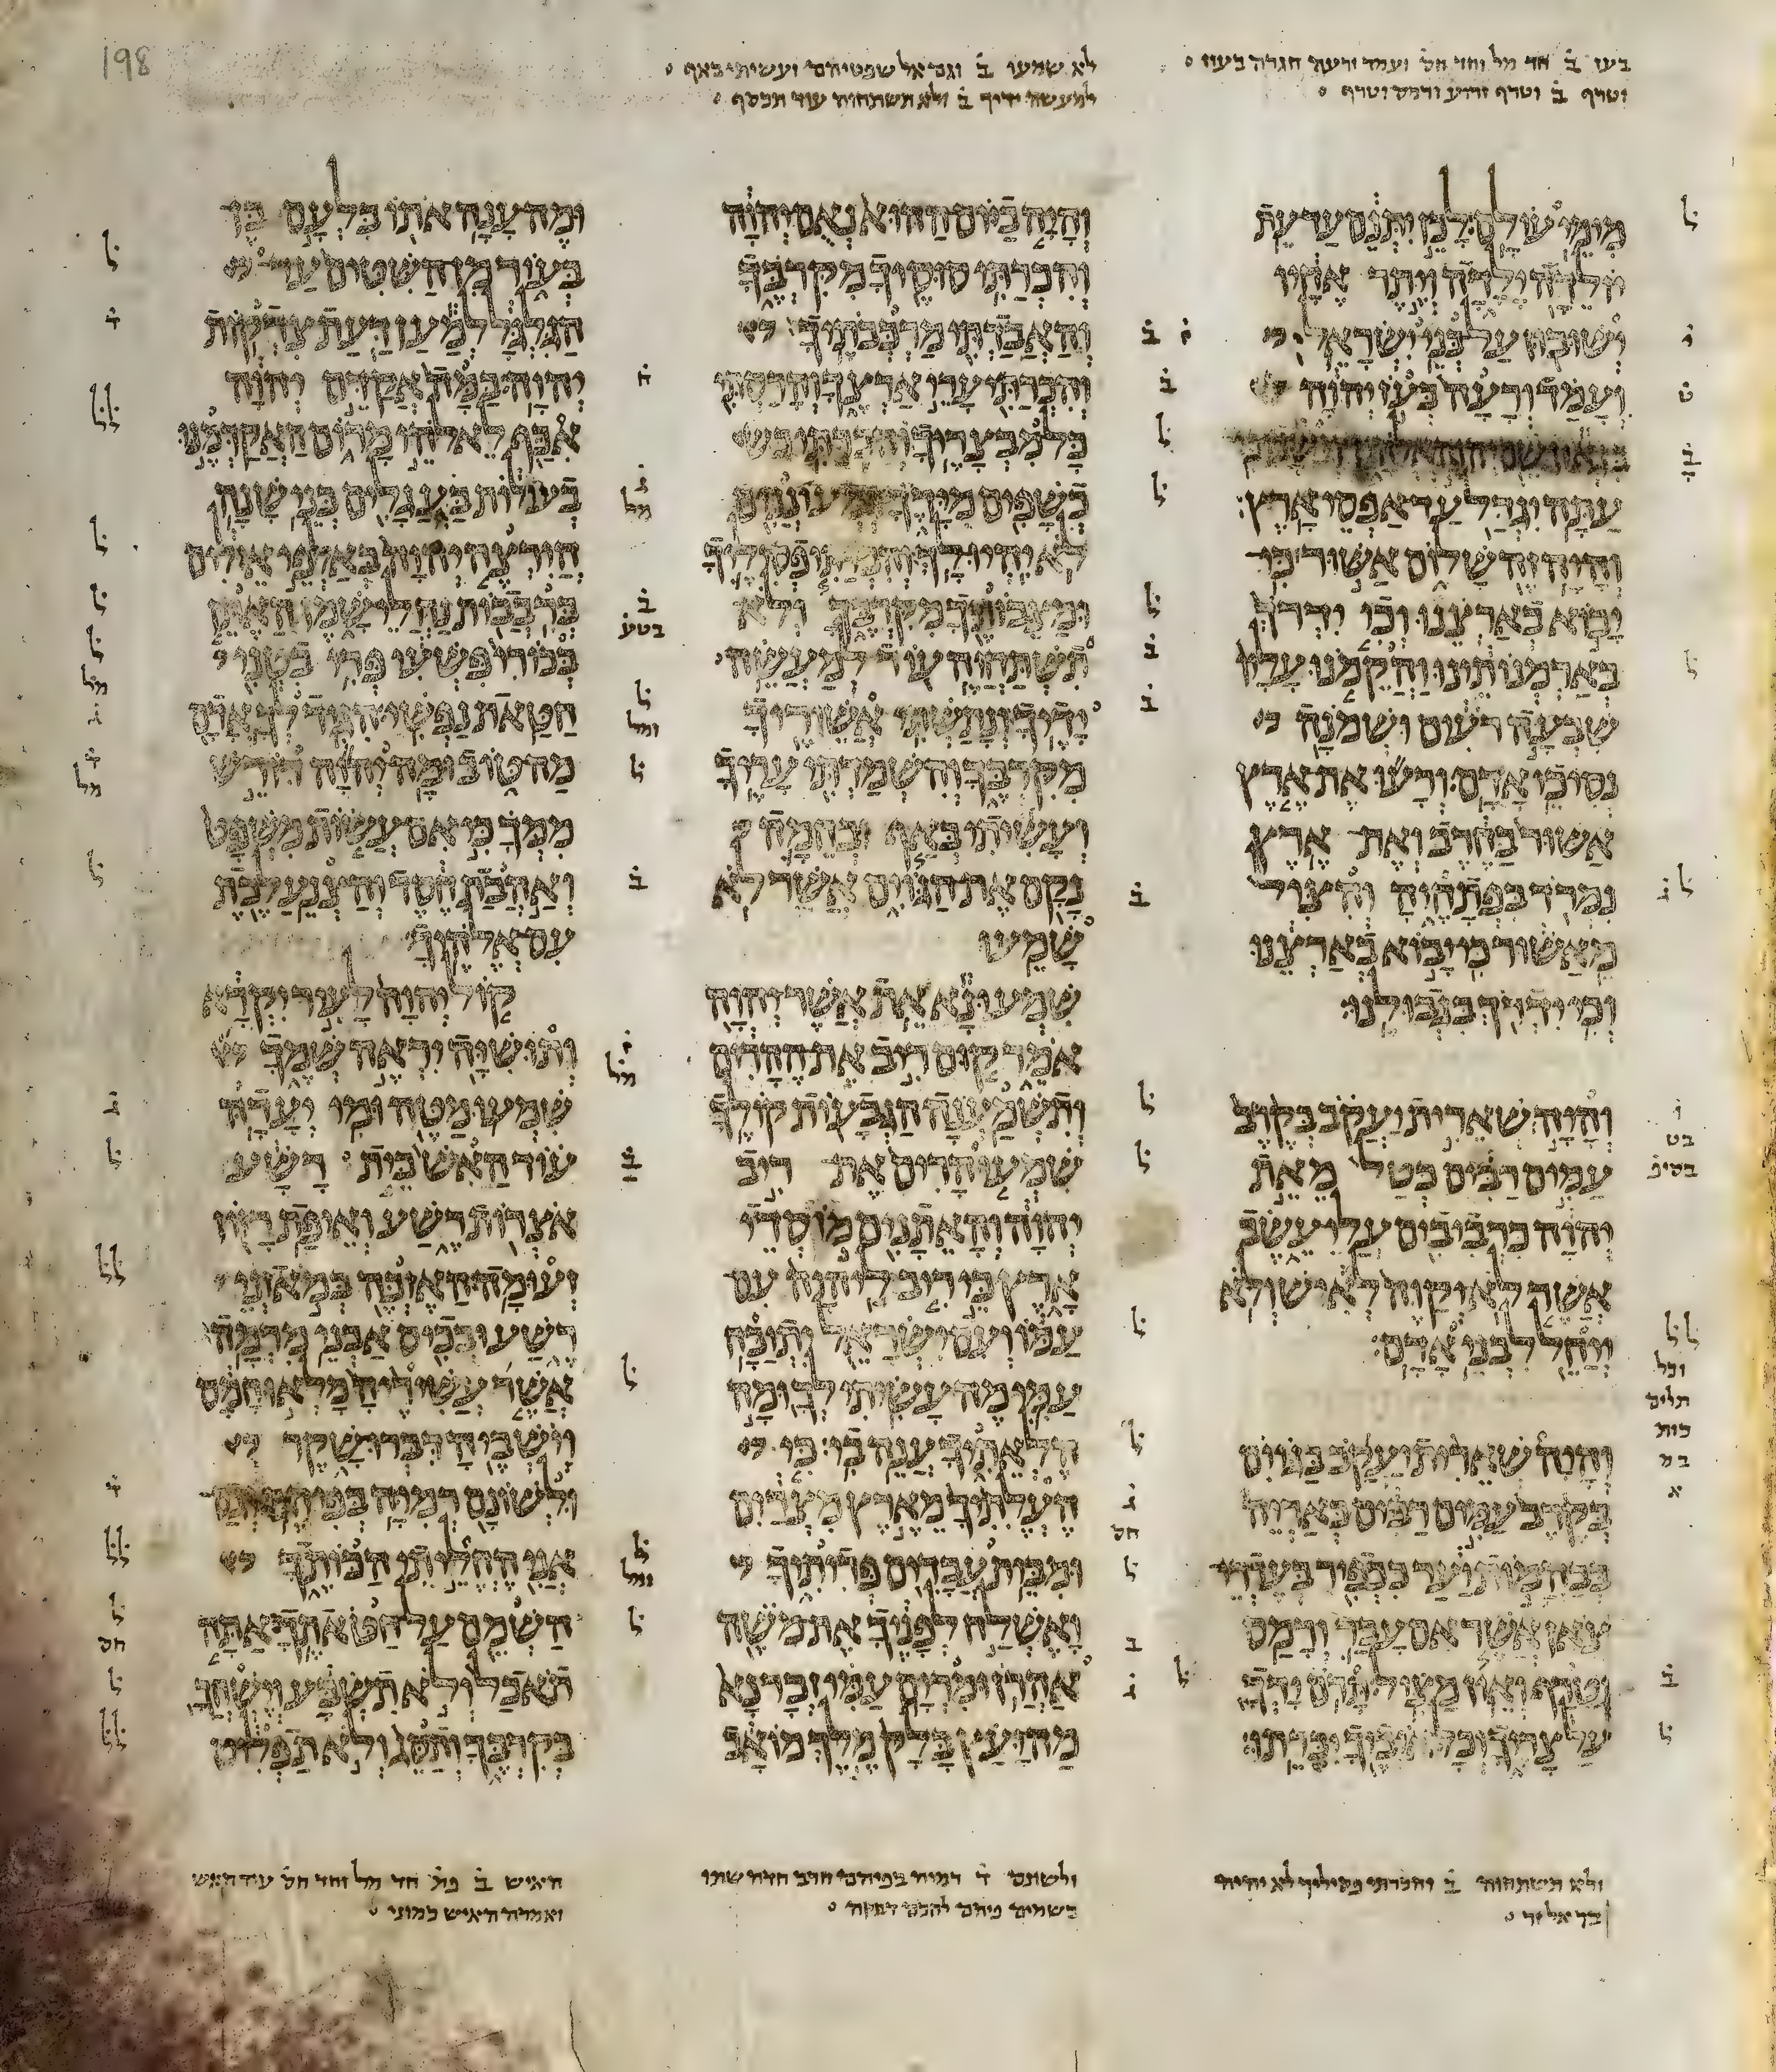 198
בעז ב̇ חד מל וחד חס ועמד ורעה חגרה בעוז
וטרף ב̇ וטרף זרוע ורמס וטרף
לא שמעו ב̇ וגם אל שפטיהם ועשיתי באף
למעשה ידיך ב̇ ולא תשתחוה עוד תכסף
מימי עולם׃ לכן יתנם עד עת
יולדה ילדה ויתר אחיו
ישובון על בני ישראל׃
ועמד ורעה בעז יהוה
בגאון שם יהוה אלהיו וישבו כי
עתה יגדל עד אפסי ארץ׃
והיה זה שלום אשור כי
יבוא בארצנו וכי ידרך
בארמנתינו והקמנו עליו
שבעה רעים ושמנה
נסיכי אדם׃ ורעו את ארץ
אשור בחרב ואת ארץ
נמרד בפתחיה והציל
מאשור כי יבוא בארצנו
וכי ידרך בגבולנו׃
והיה שארית יעקב בקרב
עמים רבים כטל מאת
יהוה כרביבים עלי עשב
אשר לא יקוה לאיש ולא
ייחל לבני אדם׃
והיה שארית יעקב בגוים
בקרב עמים רבים כאריה
בבהמות יער ככפיר בעדרי
צאן אשר אם עבר ורמס
וטרף ואין מציל׃ תרם ידך
על צריך וכל איביך יכרתו׃
והיה ביום ההוא נאם יהוה
והכרתי סוסיך מקרבך
והאבדתי מרכבתיך׃
והכרתי ערי ארצך והרסתי
כל מבצריך׃ והכרתי
כשפים מידך ומעוננים
לא יהיו לך׃ והכרתי פסיליך
ומצבותיך מקרבך ולא
תשתחוה עוד למעשה
ידיך׃ ונתשתי אשיריך
מקרבך והשמדתי עריך׃
ועשיתי באף ובחמה
נקם את הגוים אשר לא
שמעו
שמעו נא את אשר יהוה
אמר קום ריב את ההרים
ותשמענה הגבעות קולך׃
שמעו הרים את ריב
יהוה והאתנים מוסדי
ארץ כי ריב ליהוה עם
עמו ועם ישראל יתוכח׃
עמי מה עשיתי לך ומה
הלאתיך ענה בי׃ כי
העלתיך מארץ מצרים
ומבית עבדים פדיתיך
ואשלח לפניך את משה
אהרן ומרים׃ עמי זכר נא
מה יעץ בלק מלך מואב
ומה ענה אתו בלעם בן
בעור מן השטים עד
הגלגל למען דעת צדקות
יהוה׃ במה אקדם יהוה
אכף לאלהי מרום האקדמנו
בעולות בעגלים בני שנה׃
הירצה יהוה באלפי אילים
ברבבות נחלי שמן האתן
בכורי פשעי פרי בטני
חטאת נפשי׃ הגיד לך אדם
מה טוב ומה יהוה דורש
ממך כי אם עשות משפט
ואהבת חסד והצנע לכת
עם אלהיך׃
קול יהוה לעיר יקרא
ותושיה יראה שמך
שמעו מטה ומי יעדה׃
עוד האש בית רשע
אצרות רשע ואיפת רזון
זעומה׃ האזכה במאזני
רשע ובכיס אבני מרמה׃
אשר עשיריה מלאו חמס
וישביה דברו שקר
ולשונם רמיה בפיהם׃ וגם
אני החליתי הכותך
השמם על חטאתך׃ אתה
תאכל ולא תשבע וישחך
בקרבך ותסג ולא תפליט
ולא תשתחוה ב̇ והכרתי פסיליך לא יהיה
בך אל זר
ולשונם ד̇ רמיה בפיהם חרב חדה שתו
בשמים פיהם להמק תמק
האיש ב̇ כת חד מל וחד חס עוד האש
ואמרה האיש כמוני